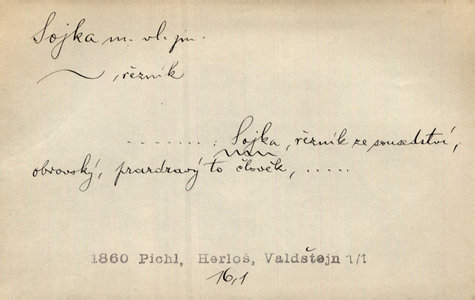 Sojka m. vl. jm.
, řezník
........ ; Sojka, řezník ze sousedství,
obrovský, prazdravý to člověk, .....
1860 Pichl, Herloš, Valdštejn 1/1
16,1